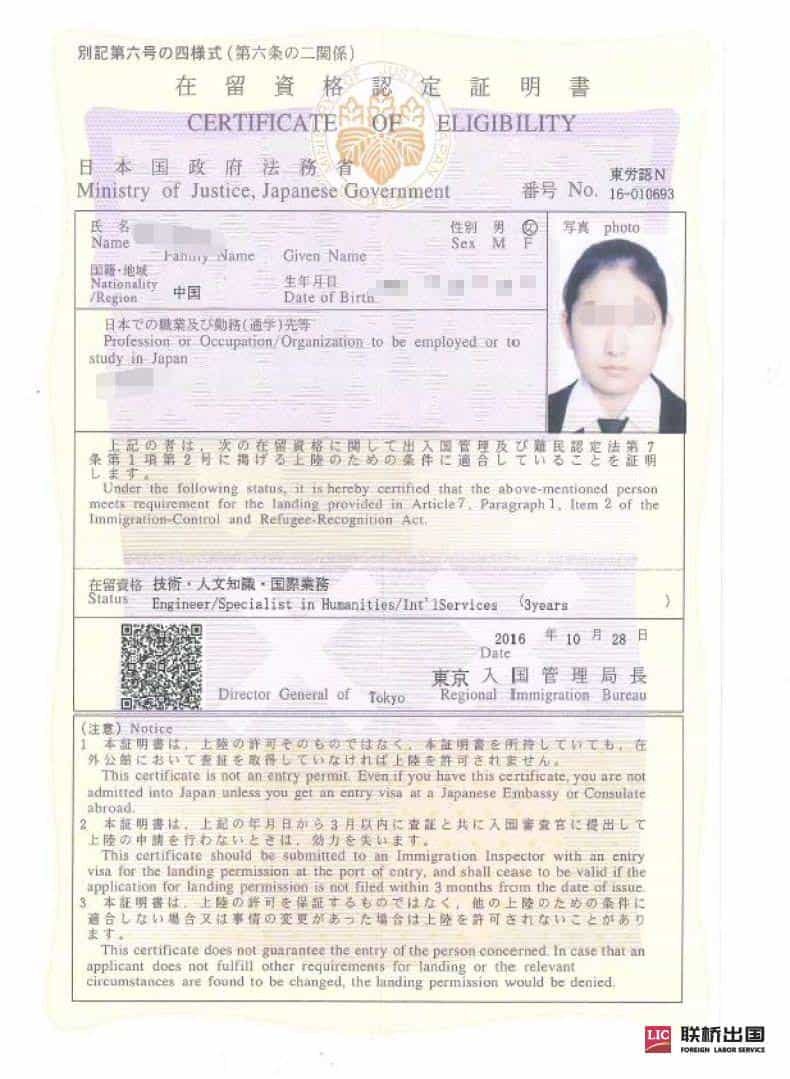 別記第六号の四様式(第六条の二関係)
在留資格認定証明書
CERTIFICATE OF ELIGIBILITY
日本国政府法務省
Ministry of Justice, Japanese Government
東労認N
番号 No. 16-010693
氏名
Name
Family Name Given Name
性別 男 女
Sex M F
写真 photo
国籍・地域
Nationality
/Region 中国
生年月日
Date of Birth
日本での職業及び勤務(通学)先等
Profession or Occupation/Organization to be employed or to
study in Japan
上記の者は、次の在留資格に関して出入国管理及び難民認定法第7
条第1項第2号に掲げる上陸のための条件に適合していることを証明
します。
Under the following status, it is hereby certified that the above-mentioned person
meets requirement for the landing provided in Article 7, Paragraph 1, Item 2 of the
Immigration-Control and Refugee-Recognition Act.
在留資格 技術・人文知識・国際業務
Status Engineer/Specialist in Humanities/Int'lServices (3years )
2016 年 10 月 28 日
Date
東京 入国管理局長
Director General of Tokyo Regional Immigration Bureau
(注意) Notice
1 本証明書は、上陸の許可そのものではなく、本証明書を所持していても、在
外公館において査証を取得していなければ上陸を許可されません。
This certificate is not an entry permit. Even if you have this certificate, you are not
admitted into Japan unless you get an entry visa at a Japanese Embassy or Consulate
abroad.
2 本証明書は、上記の年月日から3月以内に査証と共に入国審査官に提出して
上陸の申請を行わないときは、効力を失います。
This certificate should be submitted to an Immigration Inspector with an entry
visa for the landing permission at the port of entry, and shall cease to be valid if the
application for landing permission is not filed within 3 months from the date of issue.
3 本証明書は、上陸の許可を保証するものではなく、他の上陸のための条件に
適合しない場合又は事情の変更があった場合は上陸を許可されないことがあり
ます。
This certificate does not guarantee the entry of the person concerned. In case that an
applicant does not fulfill other requirements for landing or the relevant
circumstances are found to be changed, the landing permission would be denied.
LIC 联桥出国
FOREIGN LABOR SERVICE